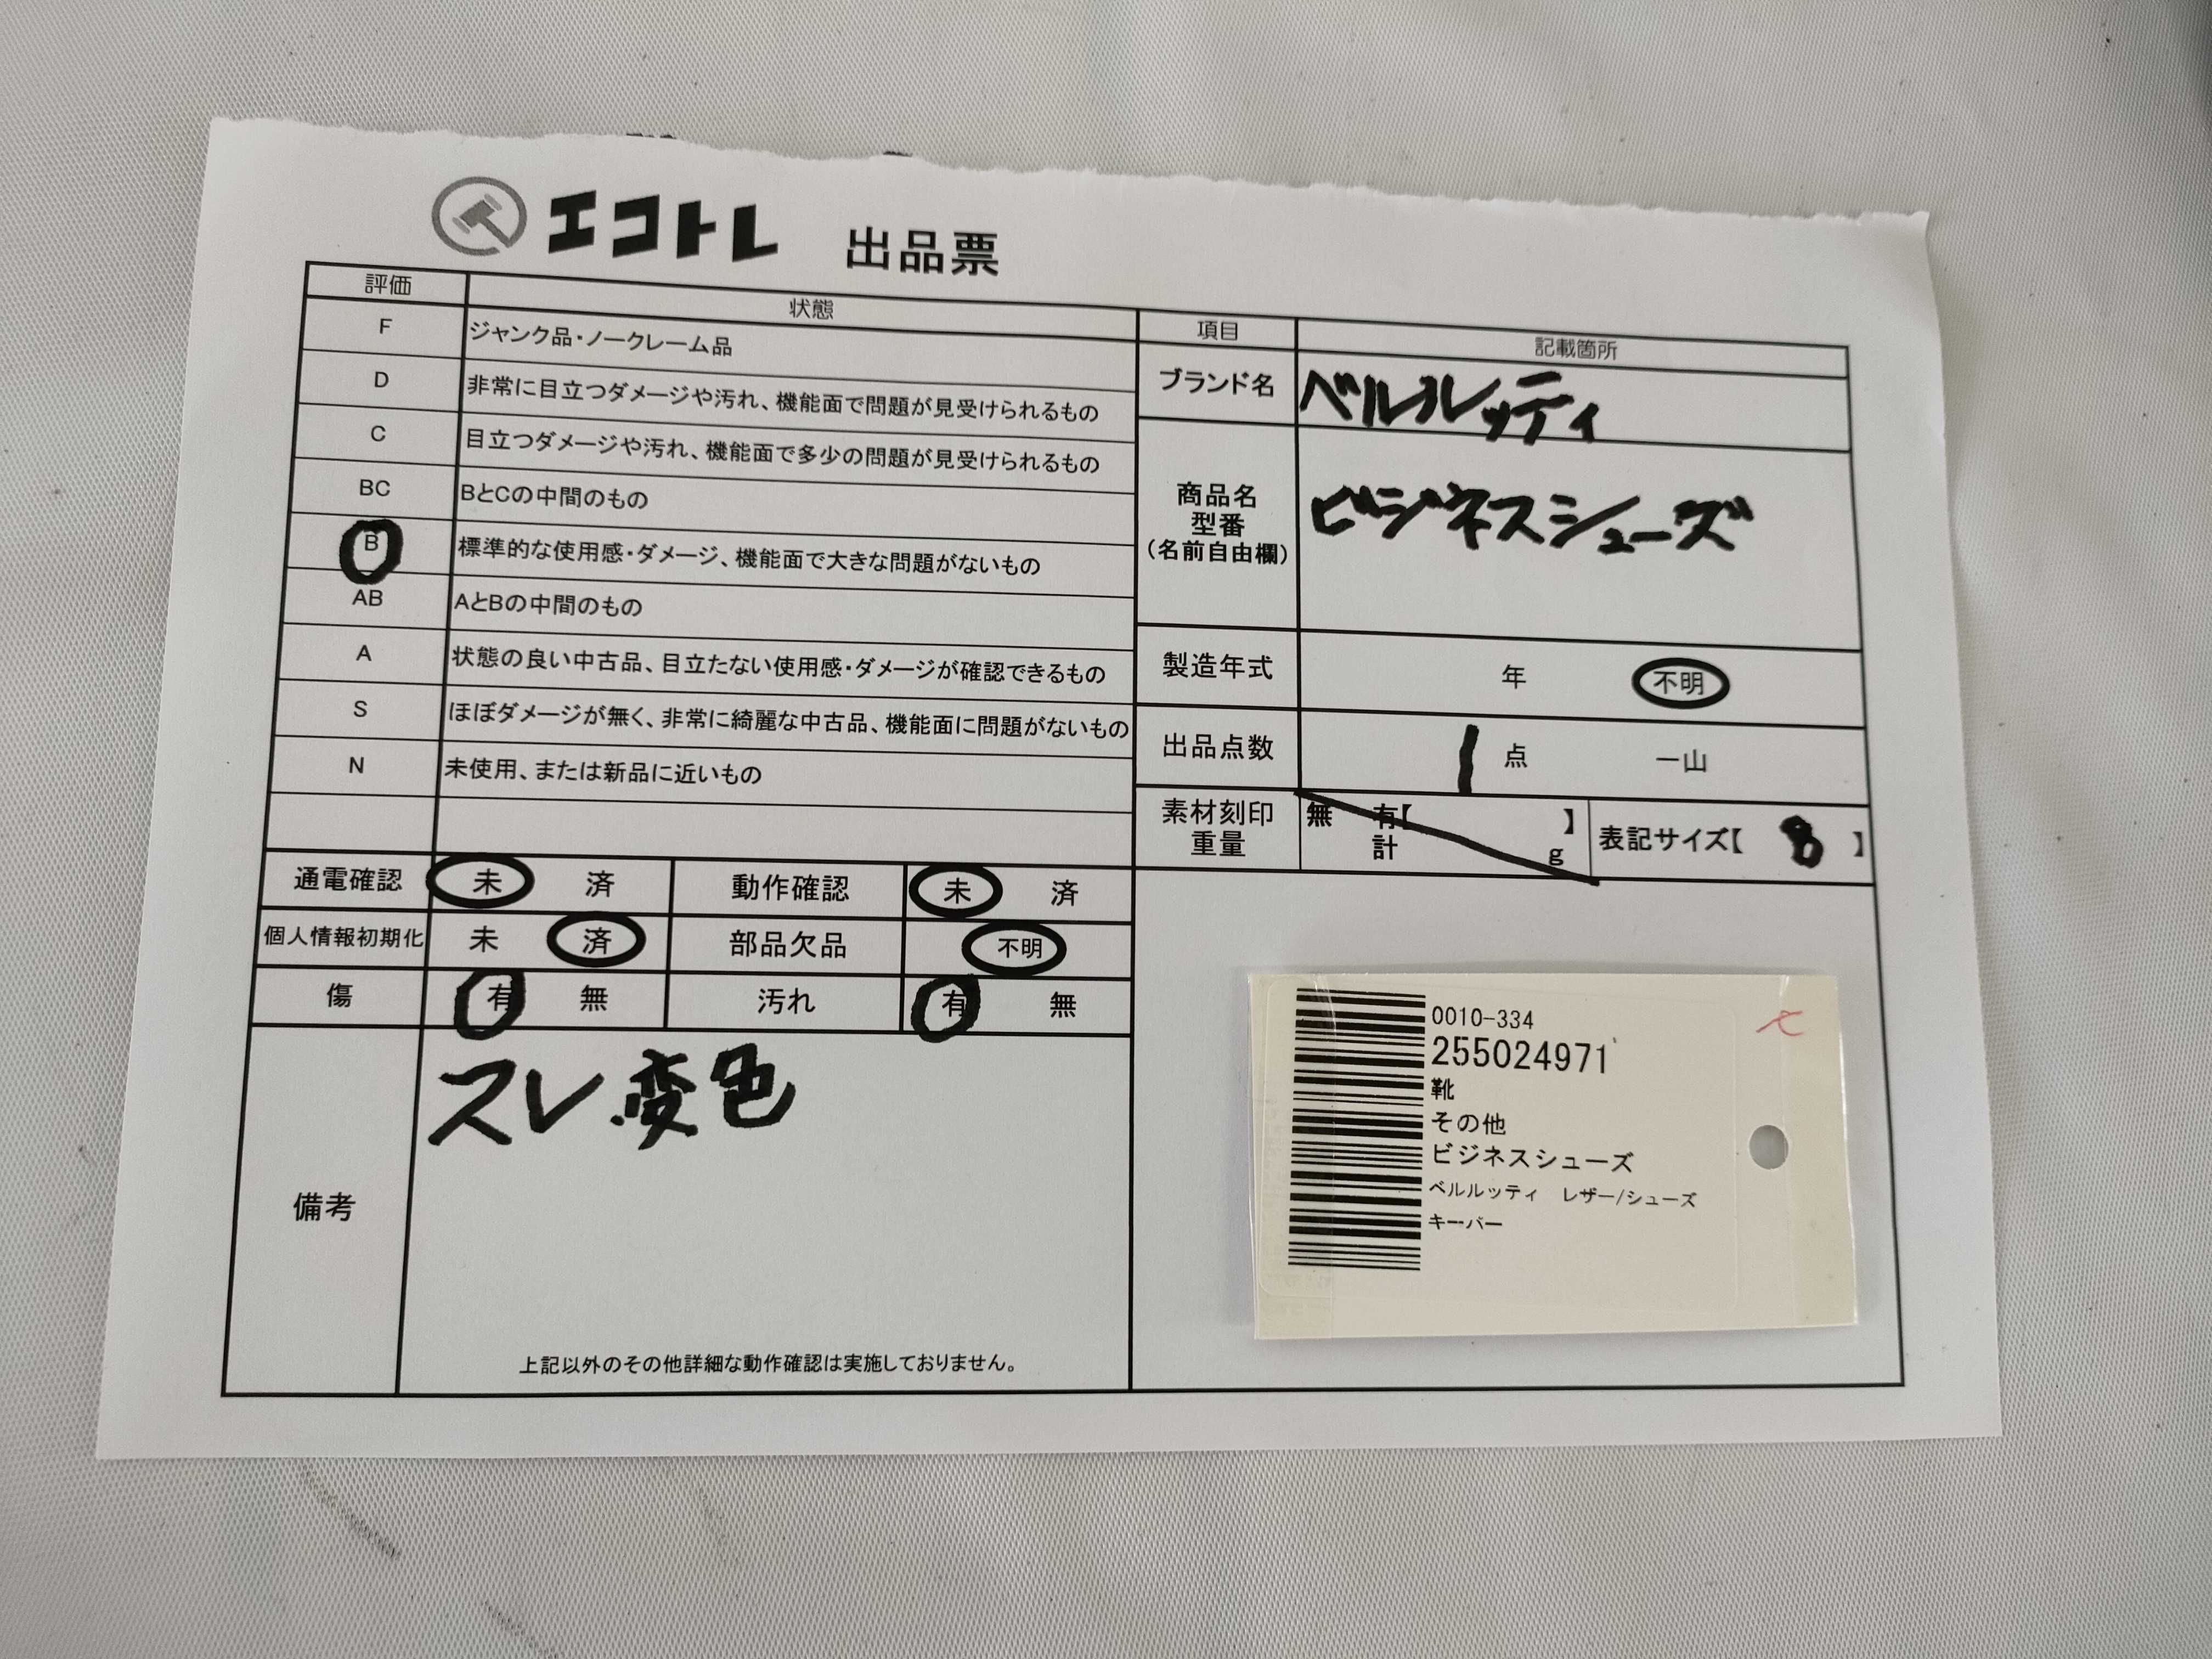 エコトレ 出品票
評価 状態
F ジャンク品・ノークレーム品
D 非常に目立つダメージや汚れ、機能面で問題が見受けられるもの
C 目立つダメージや汚れ、機能面で多少の問題が見受けられるもの
BC BとCの中間のもの
B 標準的な使用感・ダメージ、機能面で大きな問題がないもの
AB AとBの中間のもの
A 状態の良い中古品、目立たない使用感・ダメージが確認できるもの
S ほぼダメージが無く、非常に綺麗な中古品、機能面に問題がないもの
N 未使用、または新品に近いもの
項目 記載箇所
ブランド名 ベルルッティ
商品名
型番
(名前自由欄)
ビジネスシューズ
製造年式 年 不明
出品点数 1 点 一山
素材刻印 無 有【 】
重量 計 g
表記サイズ【 8 】
通電確認 未 済 動作確認 未 済
個人情報初期化 未 済 部品欠品 不明
傷 有 無 汚れ 有 無
備考
スレ 変色
上記以外のその他詳細な動作確認は実施しておりません。
0010-334
255024971
靴
その他
ビジネスシューズ
ベルルッティ レザー/シューズ
キーパー